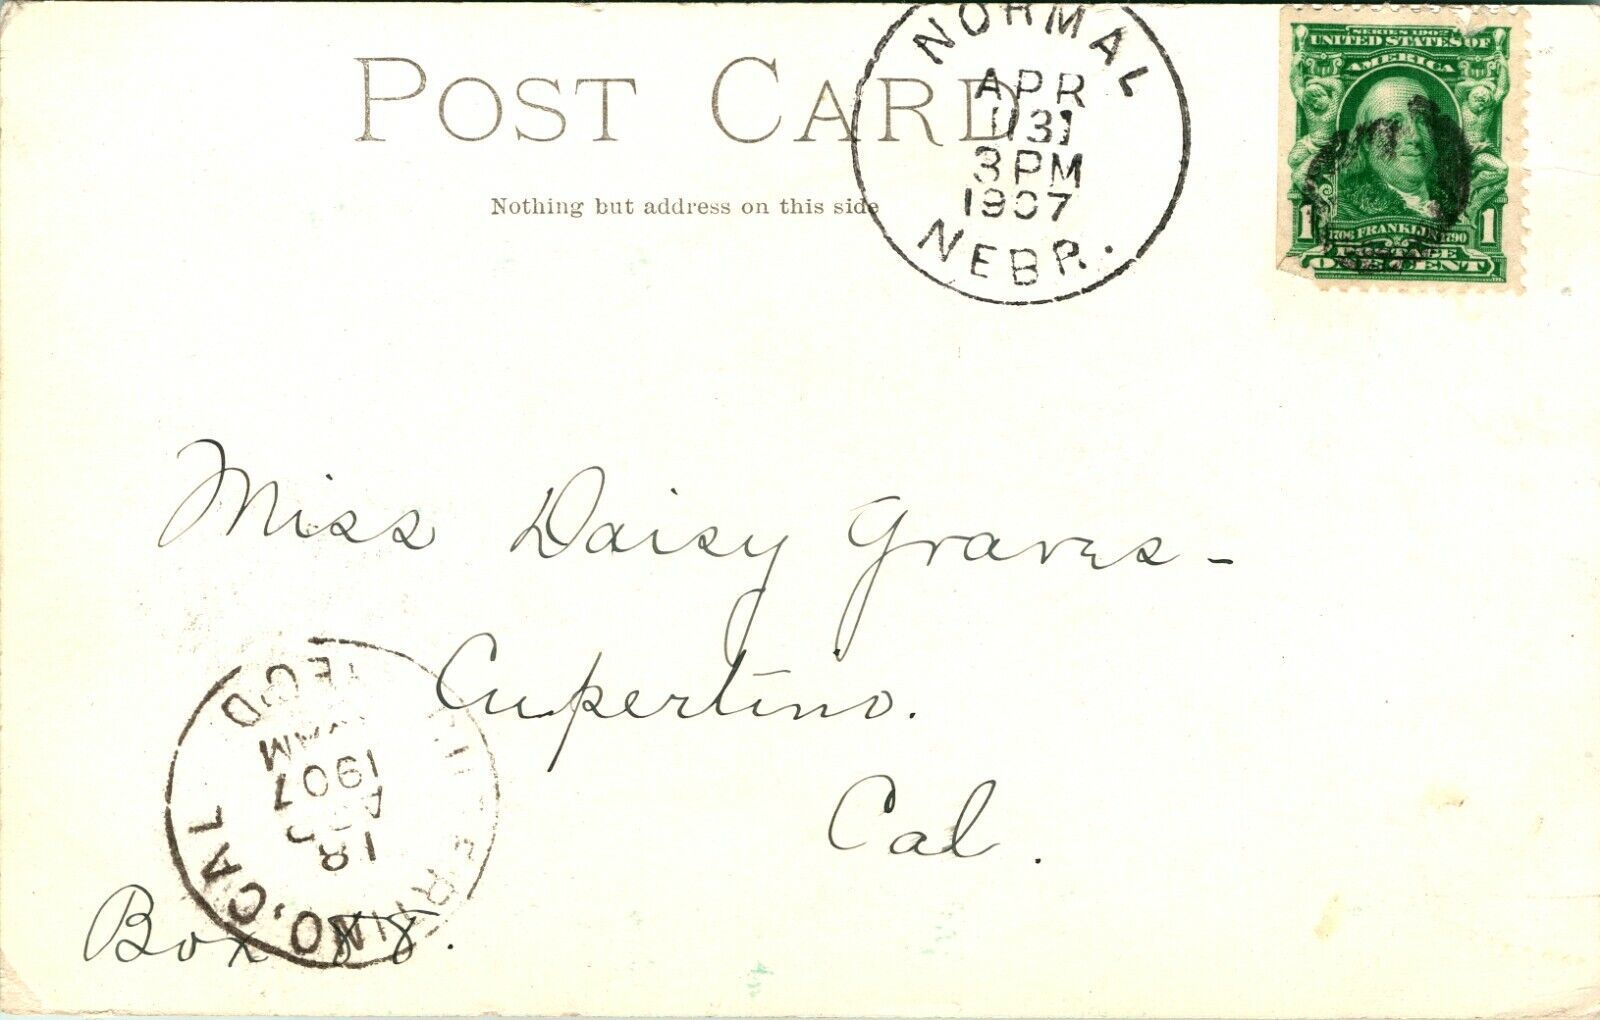 NORMAL
APR
1131
3 PM
1907
NEBR.
SERIES 1902
UNITED STATES OF
AMERICA
1 1706 FRANKLIN 1790 1
ONE CENT
POST CARD
Nothing but address on this side
Miss Daisy Graves-
Cupertino.
Cal.
Box 88.
CUPERTINO, CAL
18
APR
1907
AM
REC'D